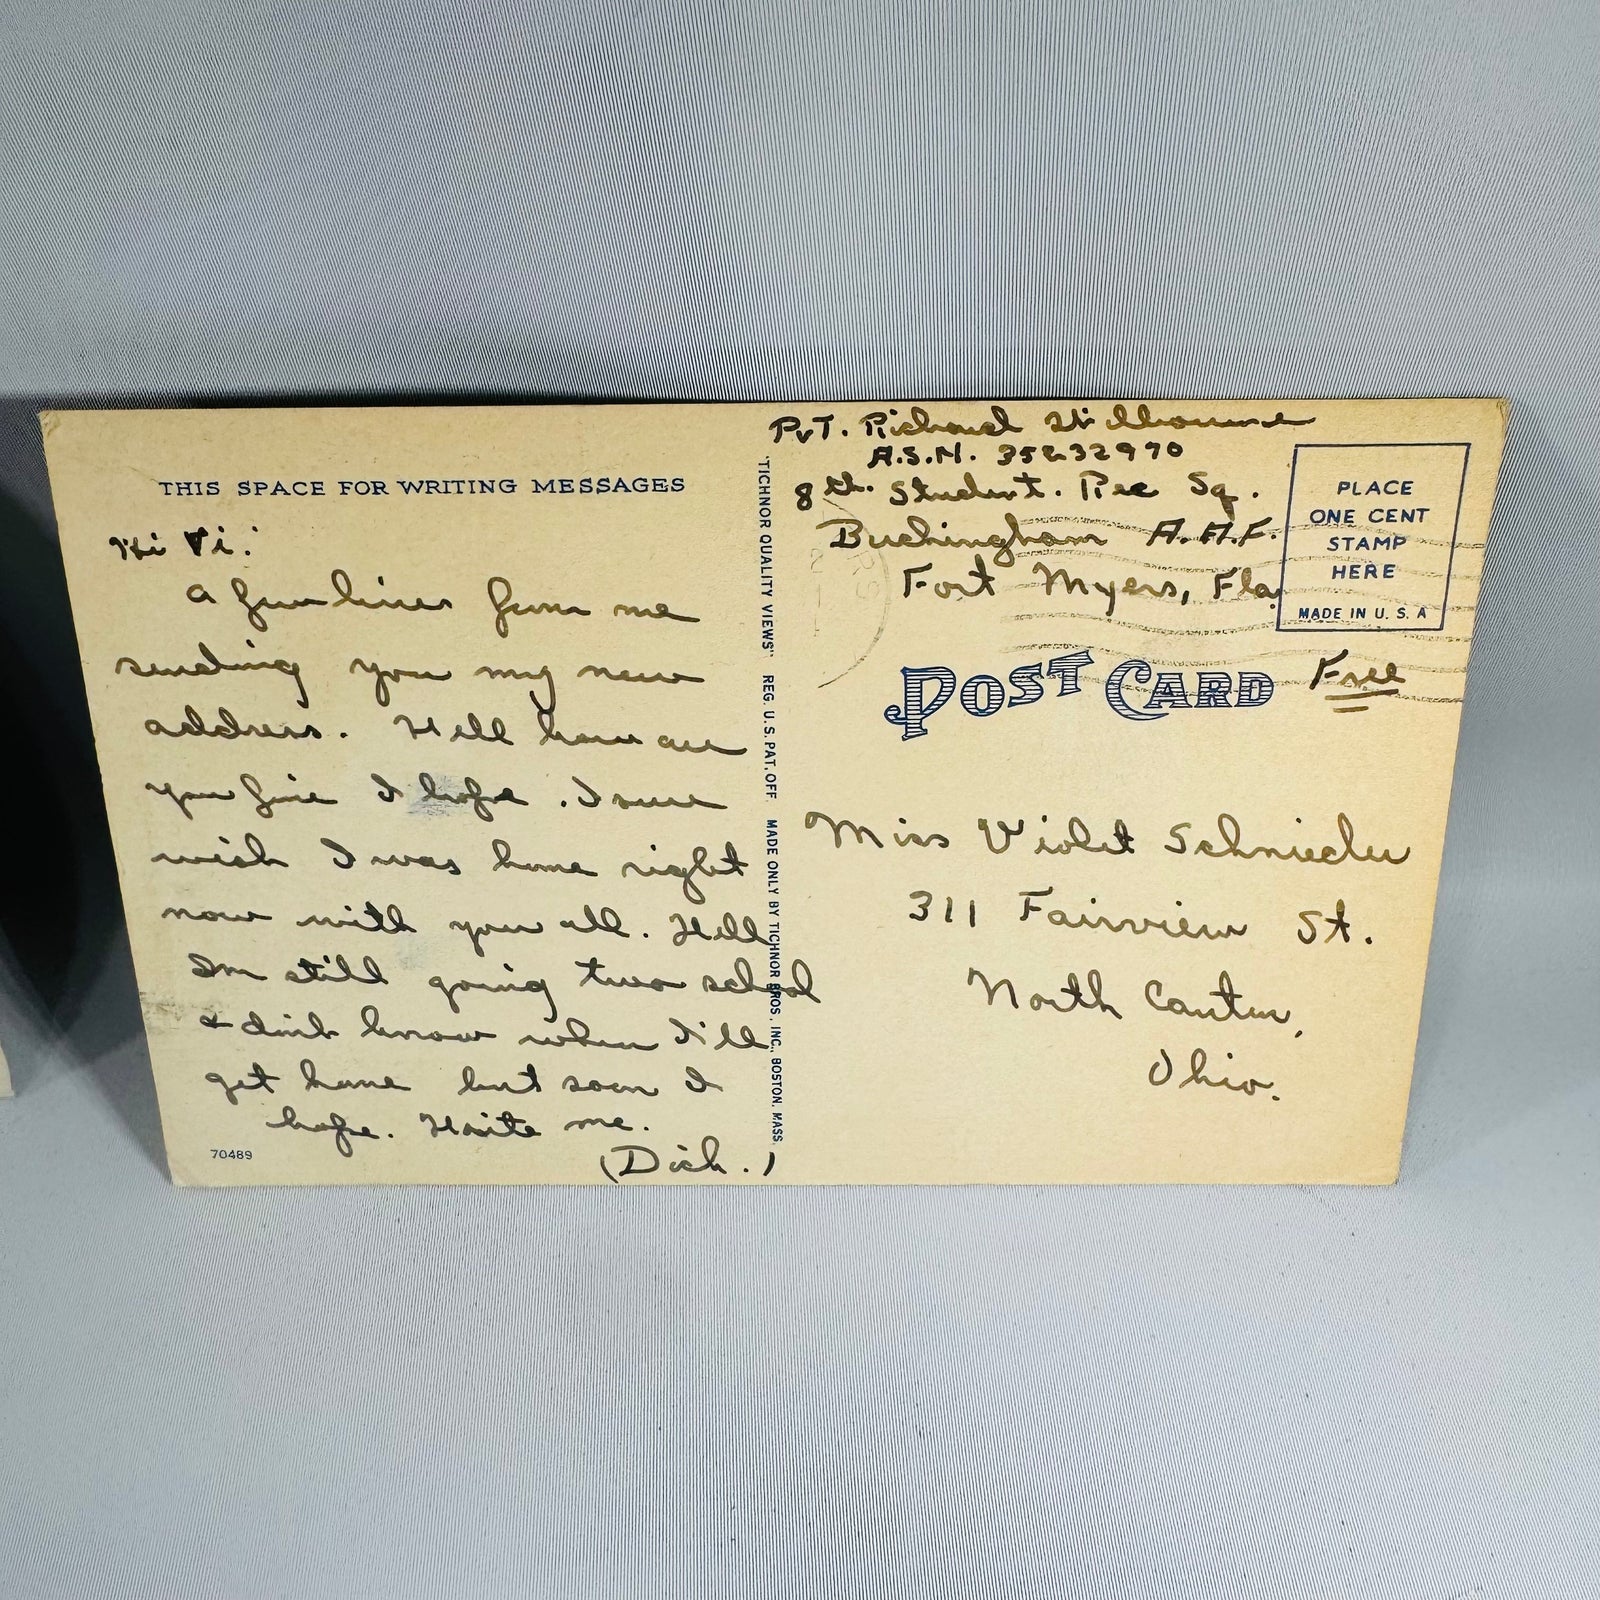 THIS SPACE FOR WRITING MESSAGES
Hi Vi:
A few lines from me
sending you my new
address. Well how are
you fine I hope. I sure
wish I was home right
now with you all. Well
Im still going two school
+ don't know when I'll
get home but soon I
hope. Write me.
(Dick.)
70489
"TICHNOR QUALITY VIEWS" REG. U.S. PAT. OFF. MADE ONLY BY TICHNOR BROS., INC., BOSTON, MASS.
Pvt. Richard
A.S.N. 35232970
8th. Student. Rec Sq.
Buckingham A.A.F.
Fort Myers, Fla.
PLACE
ONE CENT
STAMP
HERE
MADE IN U. S. A
POST CARD
Free
Miss Violet Schnieder
311 Fairview St.
North Canton,
Ohio.